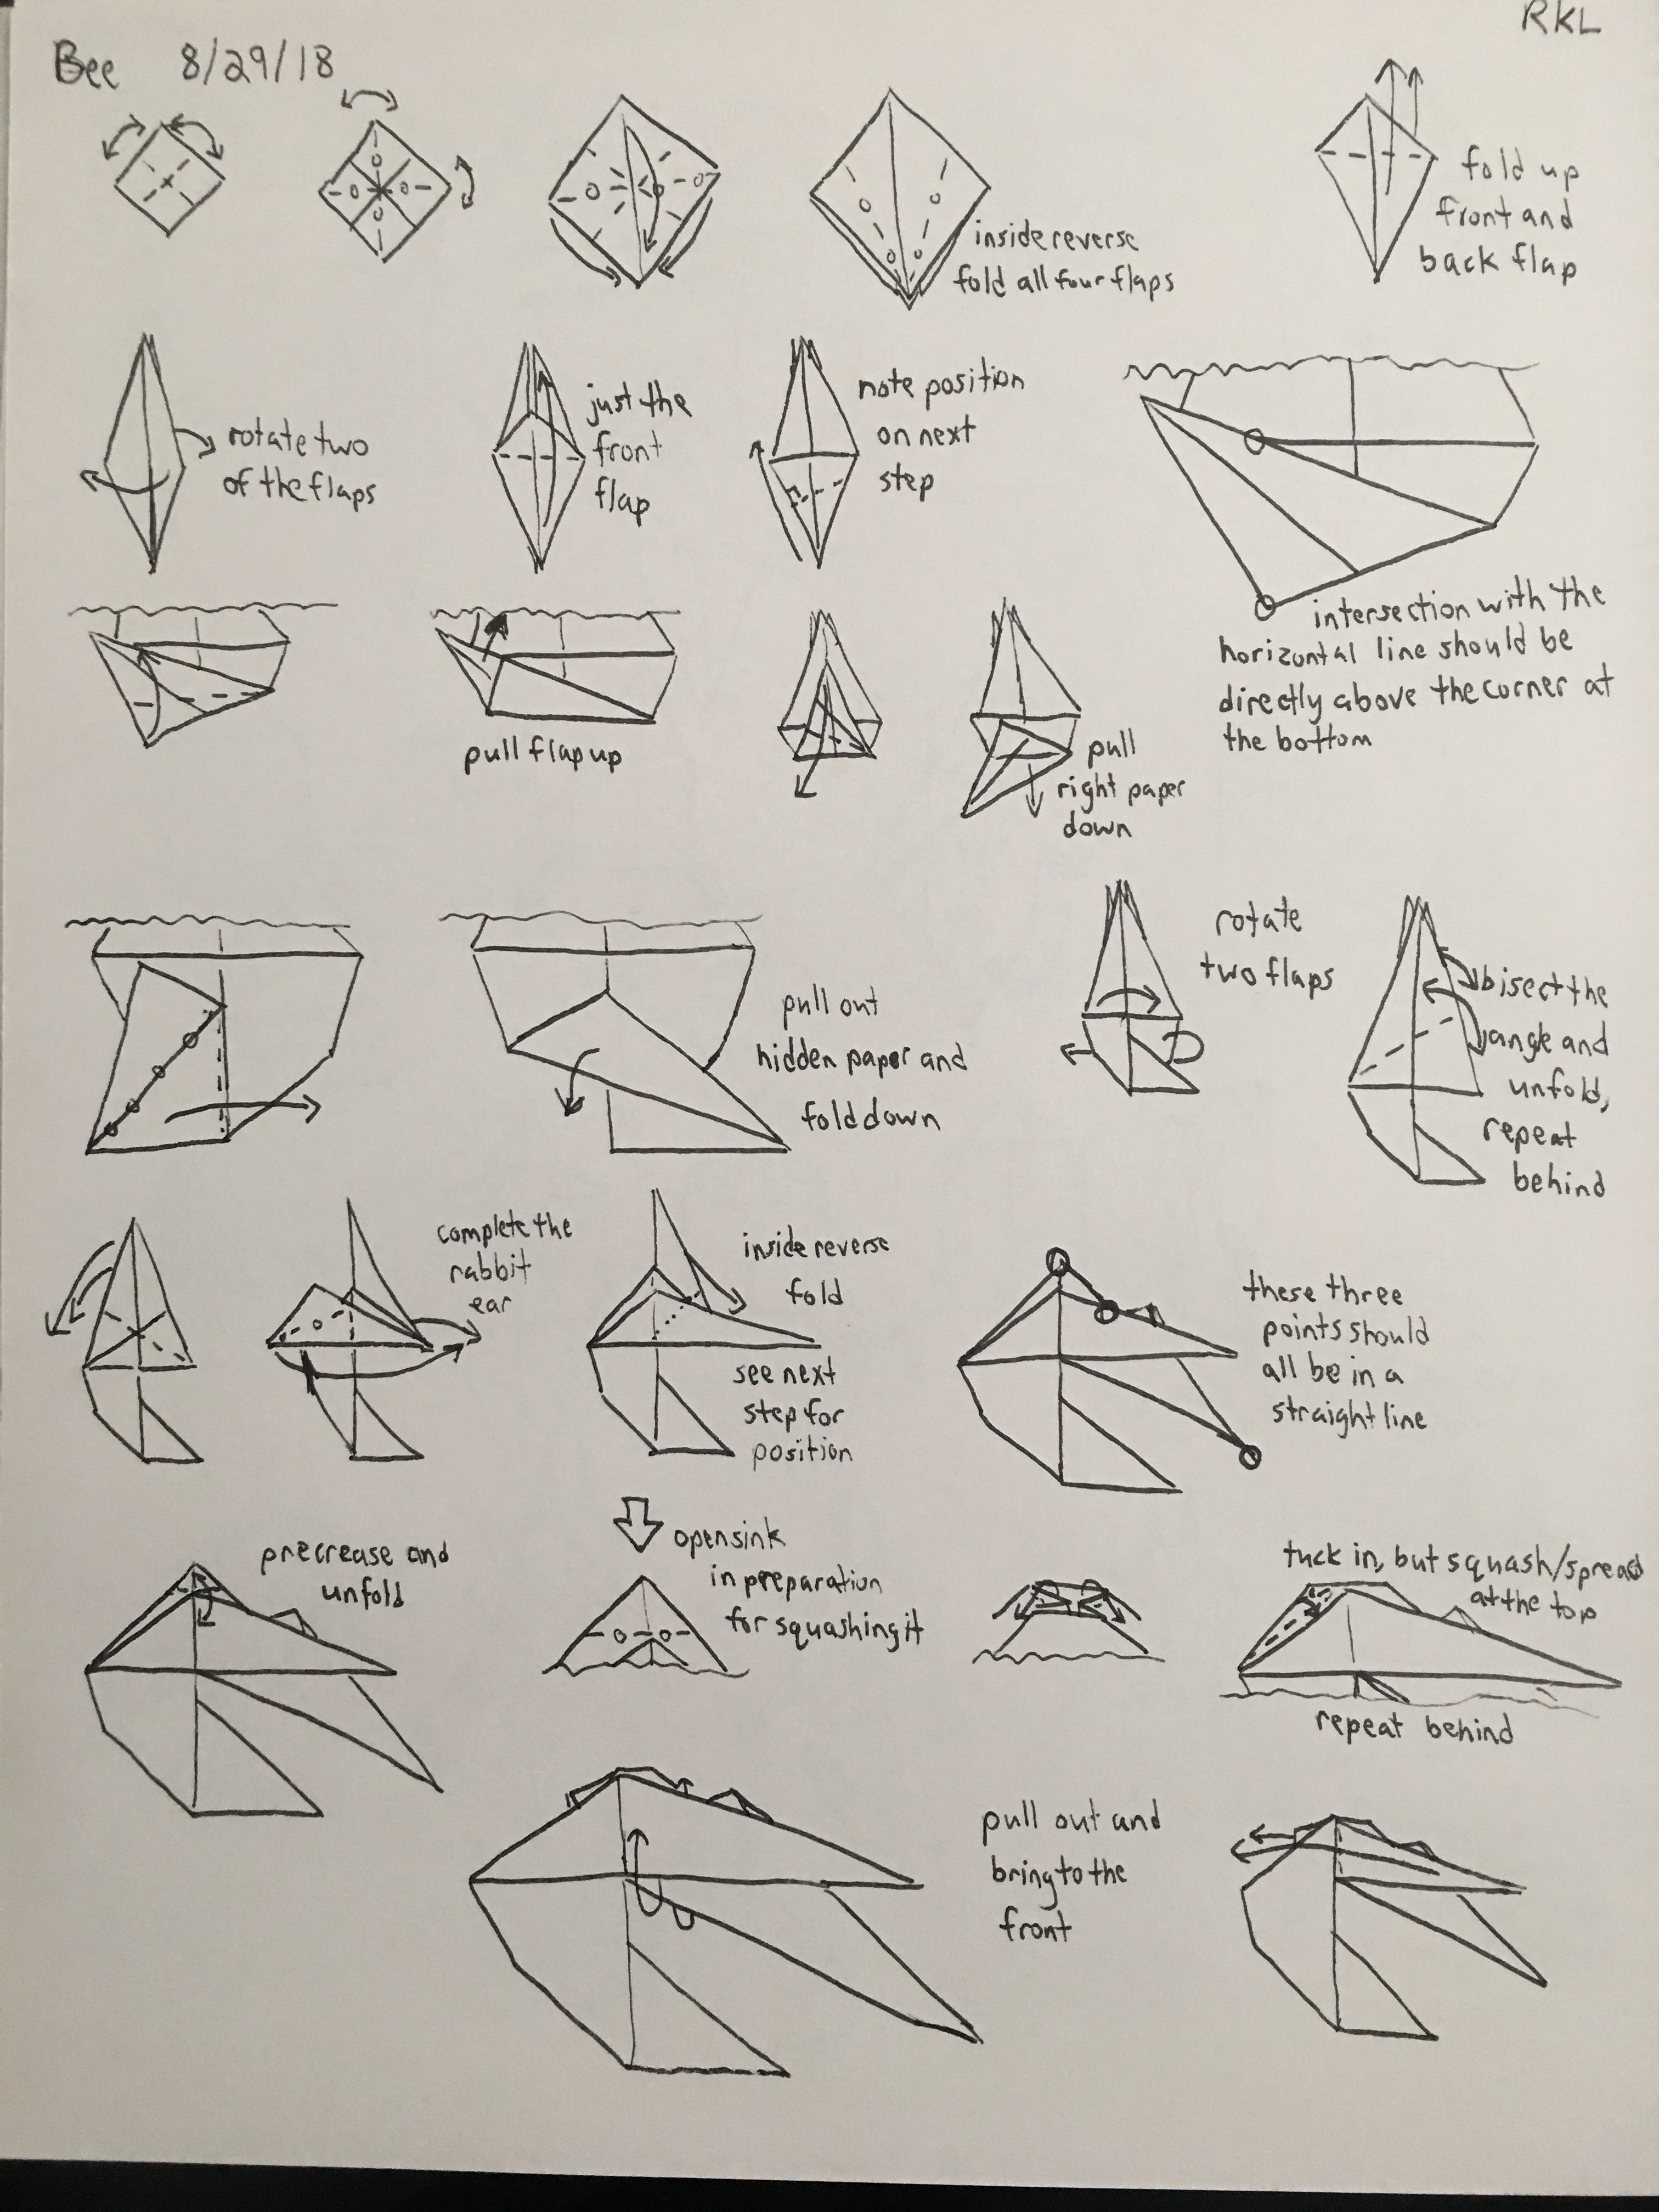 Bee 8/29/18
RKL
inside reverse
fold all four flaps
fold up
front and
back flap
rotate two
of the flaps
just the
front
flap
note position
on next
step
intersection with the
horizontal line should be
directly above the corner at
the bottom
pull flap up
pull
right paper
down
pull out
hidden paper and
fold down
rotate
two flaps
bisect the
angle and
unfold,
repeat
behind
complete the
rabbit
ear
inside reverse
fold
see next
step for
position
these three
points should
all be in a
straight line
precrease and
unfold
open sink
in preparation
for squashing it
tuck in, but squash/spread
at the top
repeat behind
pull out and
bring to the
front